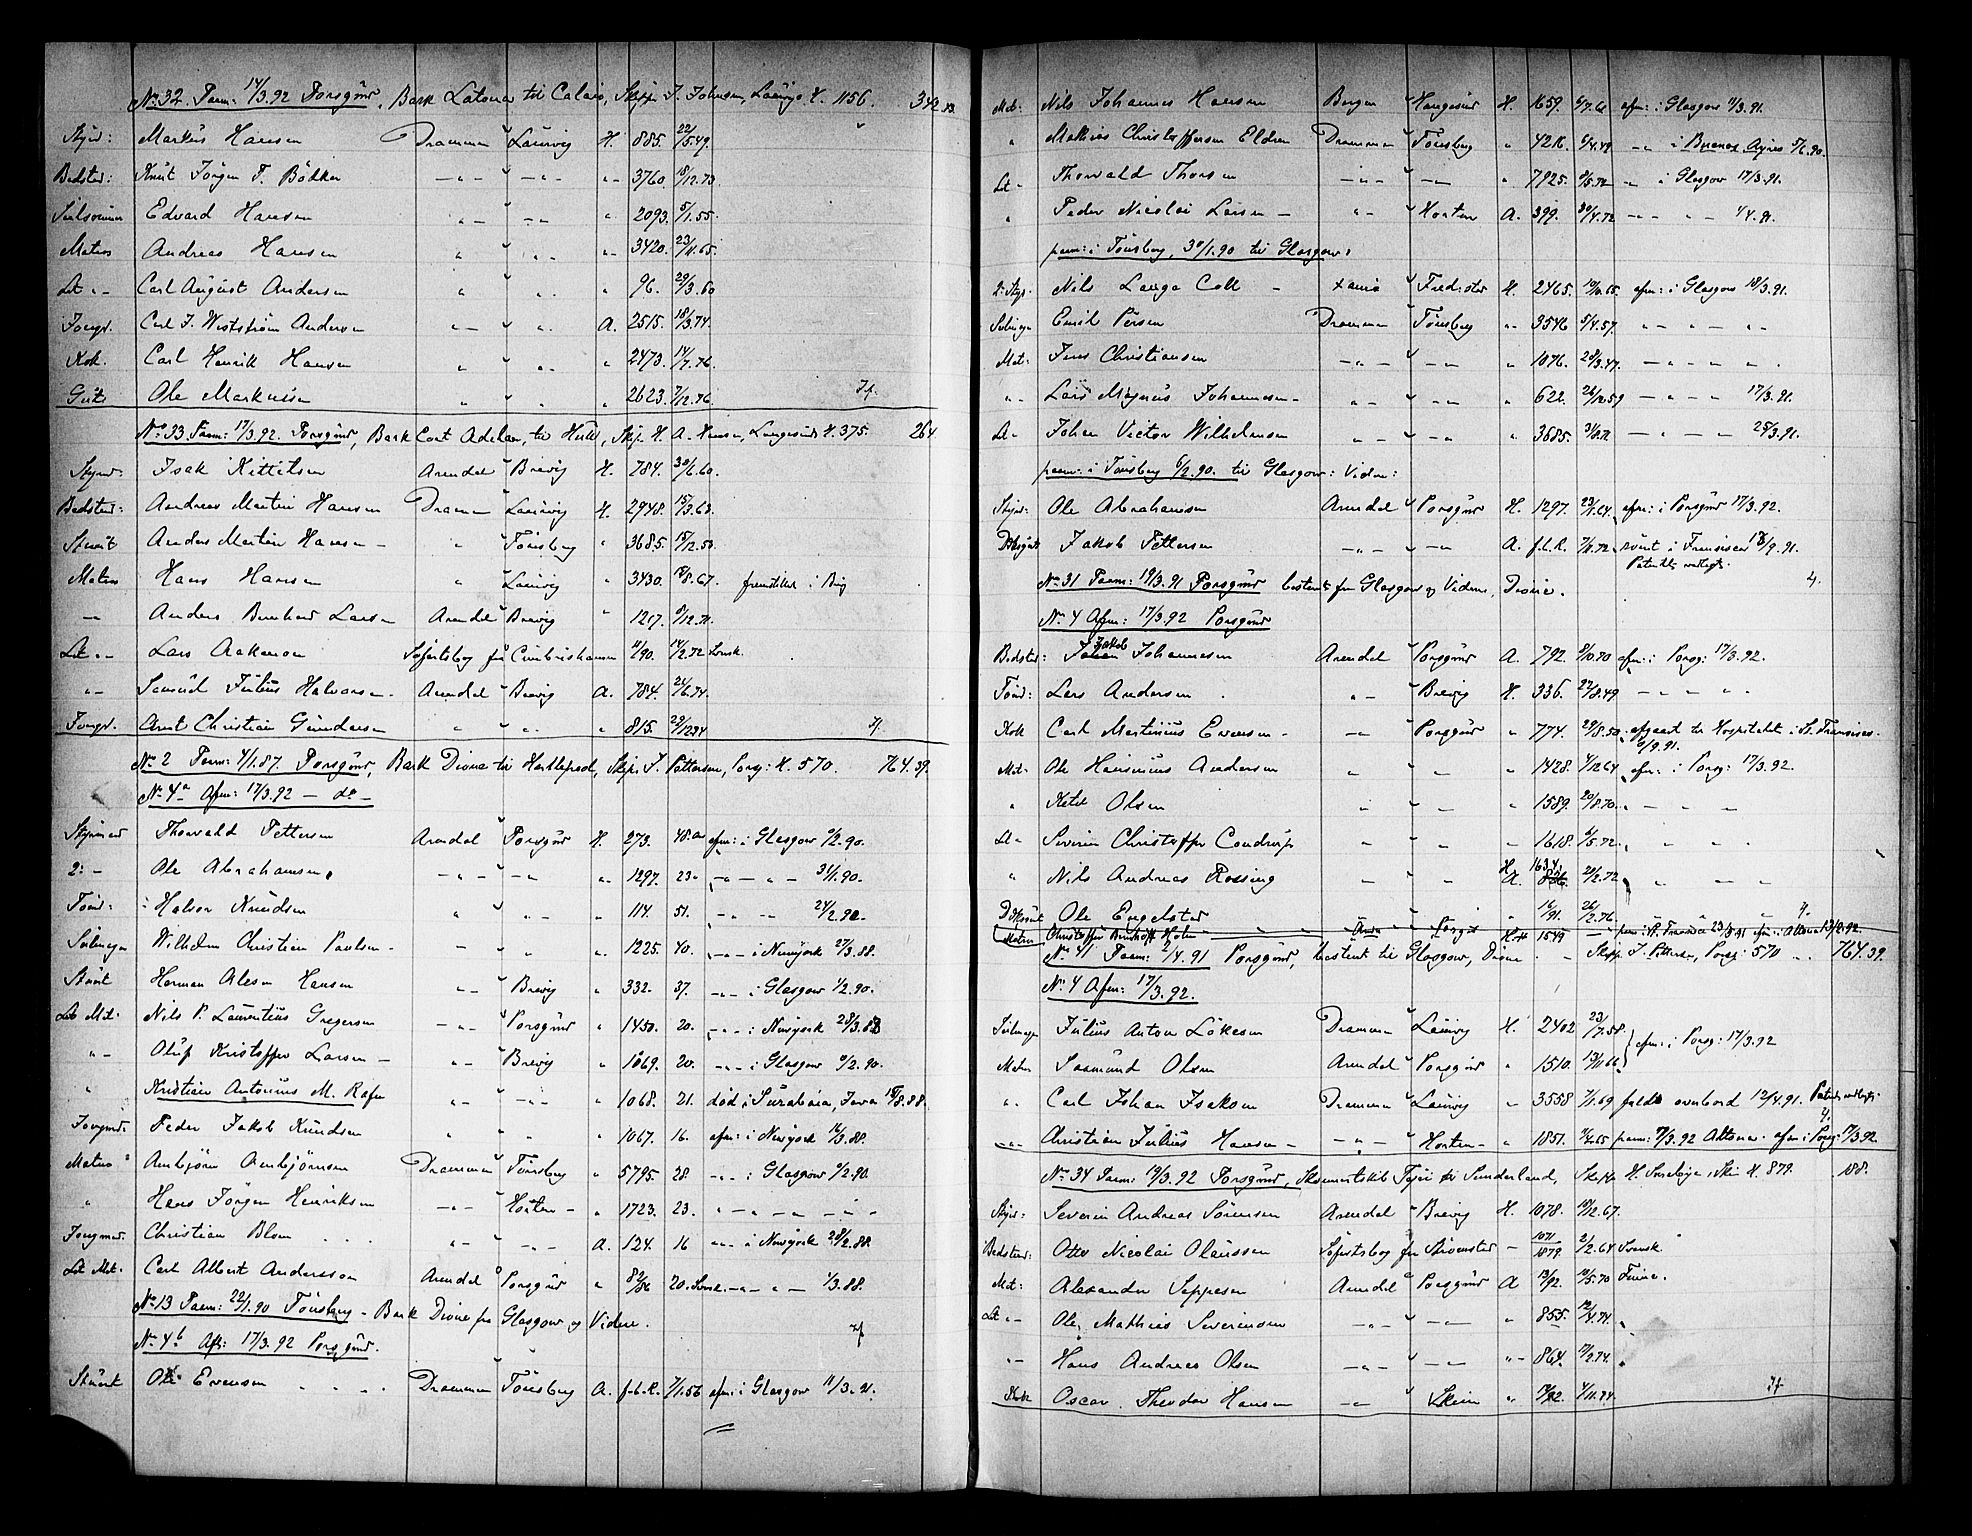 No 32. Paam: 14/3.92 Porsgund, Bark Latona til Calais, Skipp. J. Johnsen, Laurvig H. 1156. 342.
Styrm: Markus Hansen Drammen Laurvig H. 885. 22/5.49.
Bedstm: Knut Jörgen T. Bödker —"— —"— "— 3760. 18/12.73.
Seilsömmer Edvard Hansen "— "— " 2093. 5/1.55.
Matros Andreas Hansen " "— "— 3420. 23/11.65.
Let "— Carl August Andersen " " " 96. 29/3.60
Jungm. Carl J. Andersen "— " A. 2515. 18/3.74.
Kok. Carl Henrik Hansen " " " 2473. 14/7.76.
Gut Ole Markussen " " " 2623. 7/12.76.
No 33. Paam: 17/3.92. Porsgund, Bark Cort Adelaer, til Hull, Skip. H. A. Hansen, Langesund H. 375. 264.
Styrm: Isak Kittilsen Arendal Brevig H. 784. 30/6.60.
Bedstm: Andreas Martin Hansen Drammen Laurvig H. 2948. 15/3.63.
Stuert Anders Martin Hansen — " Tönsberg " 3685. 15/12.50.
Matros Hans Hansen " Laurvig " 3430. 12/8.67. fremstillet i Brvg
—"— Anders Bernhard Larsen Arendal Brevig " 1217. 9/12.71.
Let "— Lars Aakeson Söfartsbog fra Cimbrishamn 11/90. 14/2.72 Svensk.
"— Samuel Julius Halvorsen. Arendal Brevig A. 784. 24/6.74.
Jungm. Arnt Christian Gundersen " " " 815. 29/12.74
No 2 Paam: 4/1.87. Porsgund, Bark Dione til Hartlepool, Skip. J. Pettersen, Porsg: H. 570. 764.39.
No 4a Afm: 17/3.92 — do —
Styrmand Thorvald Pettersen Arendal Porsgund H. 273. 48. aar afm: i Glasgow 6/2.90.
2: — Ole Abrahamsen. —"— —"— "— 1297. 23" —"— "— 31/1.90.
Tömm: Halvor Knudsen " "— " 114. 51. —"— —"— 24/2.90.
Seilmager Wilhelm Christian Paulsen — — " " 1225. 40. —"— i Newyork 27/3.88.
Stuert Herman Olesen Hansen "— Brevig " 332. 37. —"— i Glasgow 4/2.90.
Let Mat: Nils P. Laurentius Gregersen —"— Porsgund " 1450. 20. —"— i Newyork 28/3.88
"— Oluf Kristoffer Larsen — "— Brevig " 1069. 20. —"— i Glasgow 6/2.90.
" Kristian Antonius M. Rafn "— —"— " 1068. 21. död i Surabaia, Java 15/8.88.
Jungmd: Peder Jakob Knudsen " " " 1067. 16. afm: i Newyork 16/3.88.
Matros Arnbjörn Arnbjörnsen Drammen Tönsberg " 5795. 28. —"— i Glasgow 6/2.90.
" Hans Jörgen Henriksen —"— Horten — " 1723. 23. " — " — " —
Jungmd. Christian Blom "— —"— A. 124. 16 "— i Newyork 28/2.88.
Let Mat. Carl Albert Andersson Arendal Porsgund " 82/86 20. Svensk —"— " — 1/3.88.
No 13 Paam: 22/1.90 Tönsberg — Bark Dione fra Glasgow og Videre.
No 4b Afm: 17/3.92 Porsgund.
Stuert Ole Evensen Drammen Tönsberg A. f.l.R. 7/1.56 afm: i Glasgow 11/3.91.
Mat: Nils Johannes Hansen Bergen Haugesund H. 1659. 6/7.62 afm: i Glasgow 11/3.91.
" Mathias Christoffersen Eldren Drammen Tönsberg " 4216. 6/4.49 —"— i Buenos Ayres 5/6.90.
Let — Thorvald Thorsen —"— —"— " 7925. 9/5.72 —"— i Glasgow 17/3.91.
" Peder Nicolai Larsen — "— Horten A. 399. 30/4.72 —"— " — 4/4.91.
paam: i Tönsberg, 30/1.90 til Glasgow:
2. Styr. Nils Lauga Coll — Xania Fredrstad H. 2465. 19/10.65. afm: i Glasgow 18/3.91.
Seilmager Emil Persen Drammen Tönsberg "— 3546 5/4.57. —"— " — "—
Mat: Jens Christiansen —"— —"— " 1076. 28/3.47. — " — " — " .
"— Lars Magnus Johannesen — "— —"— " 622. 26/12.59 —"— " — 17/3.91.
Let — Johan Victor Wilhelmsen " —"— " 3685. 3/8.72 —"— " — 25/3.91.
paam: i Tönsberg 6/2.90. til Glasgow: Videre:
Styrm: Ole Abrahamsen Arendal Porsgund H. 1297. 23/1.64. afm: i Porsgund 17/3.92.
Jakob Pettersen —"— —"— A. f.l.R. 7/11.72 römt i Fransisco 13/9.91.
Patentbl. vedlagt.
No 31 Paam: 19/3.91 Porsgund bestemt fra Glasgow og Videre, Dione.
No 4 Afm: 17/3.92 Porsgund
Bedstm: Jakob Johannesen Arendal Porsgund A. 792. 9/10.70 afm: i Porsg: 17/3.92.
Tömm: Lars Andersen "— Brevig H. 336. 27/8.49 —"— " — "
Kok Carl Martinius Evensen — —"— Porsgund " 774. 29/8.50. afgaaet til Hospitalet i St. Francisco.
6/9.91.
Mat: Ole Hansinius Andersen " — " 1428. 4/12.64 afm: i Porsg: 17/3.92.
" Ketil Olsen " — " 1589 20/8.70. " — " —
Let — Severin Christoffer Condrup " " " 1618. 6/5.72. " " "
" Nils Andreas Rossing " " H. 1634. 20/2.72. " " "
Ole Engelstad " 16/91. 26/2.76.
Matros Christoffer Holm — " — Porsgd H. 1549 — paam: i St. Francisco 23/8.91 afm: i Altona 13/2.92.
No 41 Paam: 2/4.91 Porsgund, bestemt til Glasgow, Dione — Skipp. J. Pettersen, Porsg: 570 764.39.
No 4 Afm: 17/3.92.
Seilmager Julius Anton Lökesen Drammen Laurvig H. 2402 23/7.58. afm: i Porsg: 17/3.92
Matros Saamund Olsen Arendal Porsgund " 1510. 13/11.66.
" Carl Johan Isaksen Drammen Laurvig " 3558 7/1.69 faldt overbord 12/4.91. Patentb. vedlagt.
"— Christian Julius Hansen — —"— Horten — " 1851. 7/4.65 paam: 7/3.92 Altona. afm: i Porsg: 17/3.92
No 34 Paam: 19/3.92 Porsgund, til Sunderland, H. 879. 188.
Styr: Severin Andreas Sörensen Arendal Brevig H. 1078. 10/12.67.
Bedstm: Otto Nicolai Olaussen Söfartsbog fra Strömstad — 1071/1879. 2/2.64 Svensk
Mat: Alexander Seppesen Arendal Porsgund A 13/92. 10/5.70 Finne.
Let "— Ole Mathias Severinsen —"— —"— " 855. 12/4.74.
"— Hans Andreas Olsen —"— —"— "— 864. 17/2.74.
Kok Oscar Theodor Hansen —"— Skien " 4/11.74.